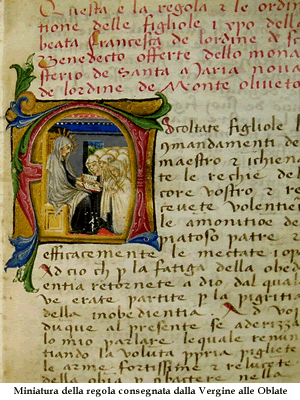 Questa e la regola & le ordi
tione delle figliole i xpo dell
beata francesca de lordine d s
Benedecto offerte dello mona
sterio de Santa Maria nova
de lordine de Monte oliveto
scoltate figliole l
comandamenti de
maestro & ichien
te le rechie del
core vostro & r
ceuete volentie
le amonitioe de
piatoso patre &
efficacemente le mectate i op
Ad cio ch p la fatiga della obe
dientia retornete a dio dal qual
ve erate partite p la pigritia
della inobedientia Ad vo
duque al presente se aderizza
lo mio parlare lequale renun
tiando la voluta ppria pigliete
le arme fortissime & reluce
della obia
Miniatura della regola consegnata dalla Vergine alle Oblate